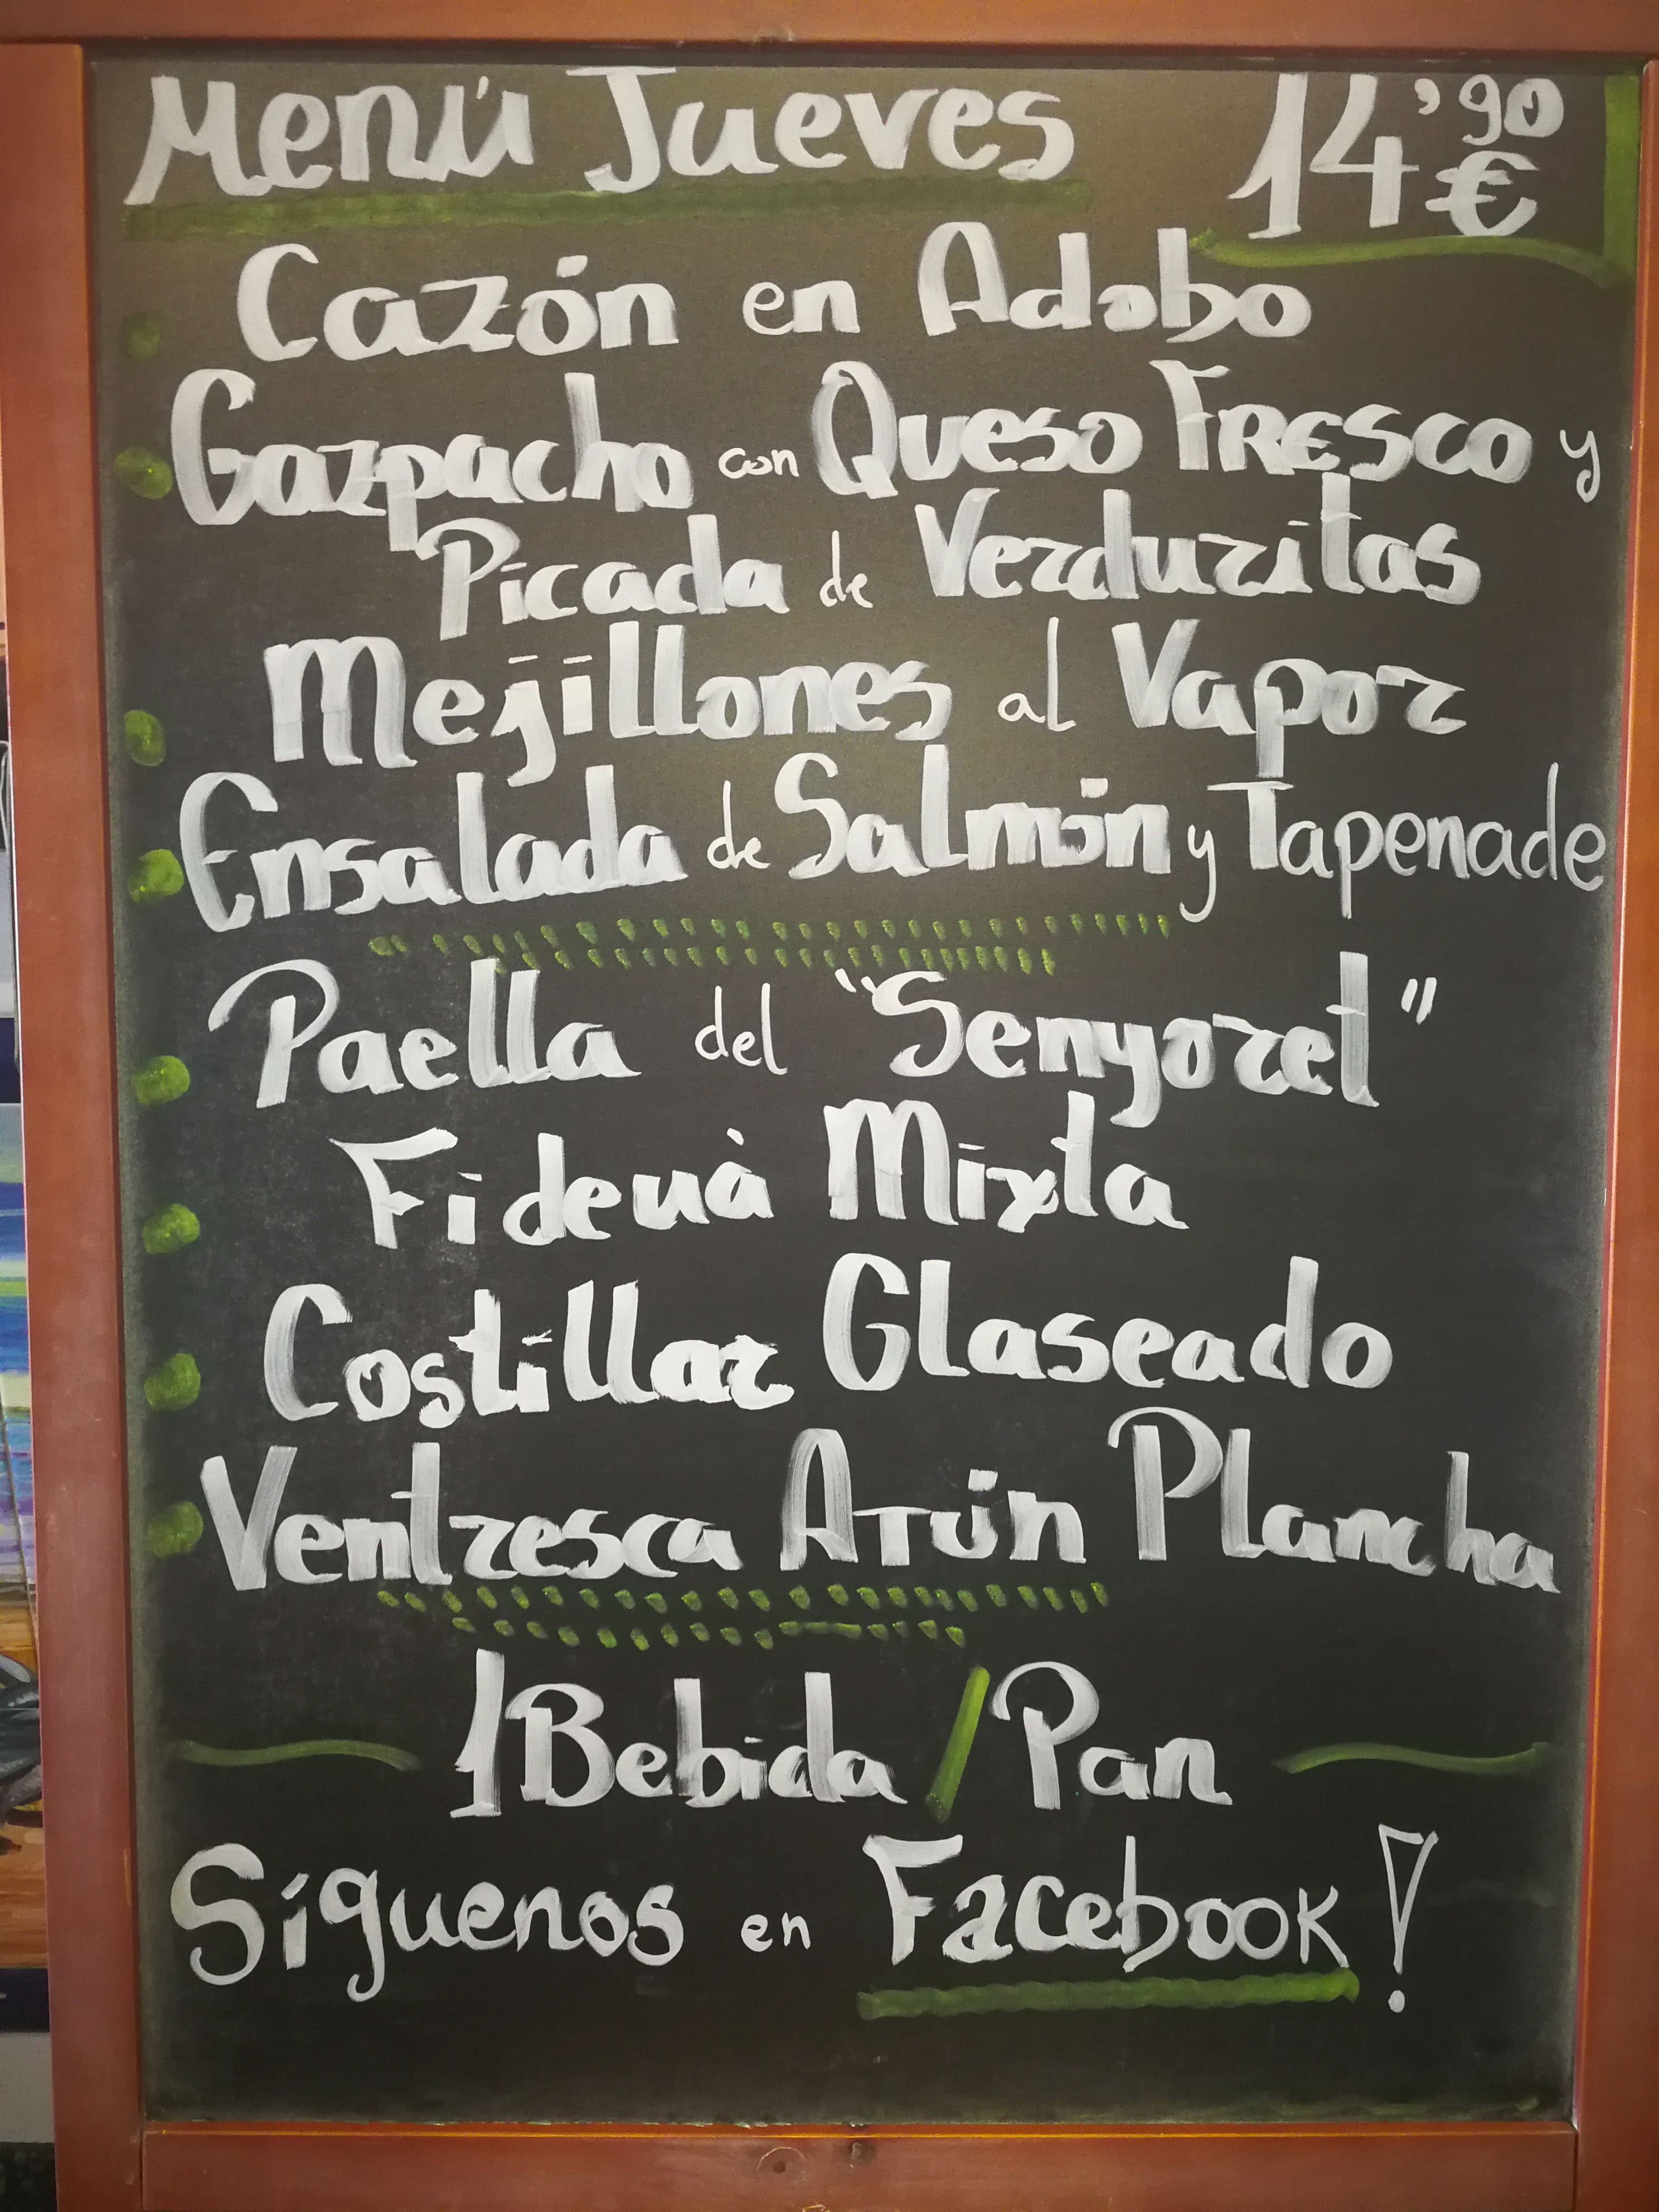 Menú Jueves 14'90 €
Cazón en Adobo
Gazpacho con Queso Fresco y
Picada de Verduritas
Mejillones al Vapor
Ensalada de Salmón y Tapenade
Paella del "Senyoret"
Fideuà Mixta
Costillar Glaseado
Ventresca Atún Plancha
1 Bebida / Pan
Síguenos en Facebook!